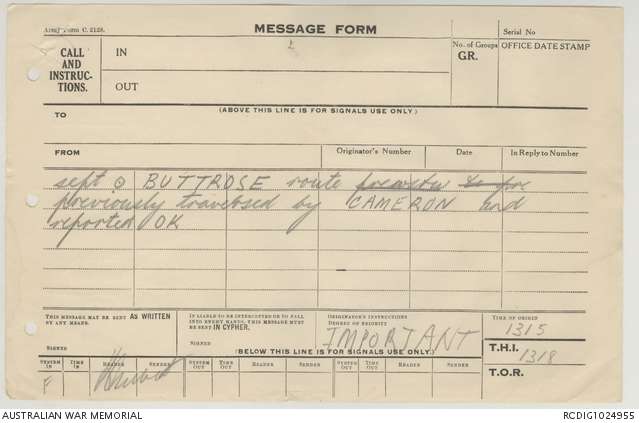 Army Form C. 2128.
MESSAGE FORM
Serial No
CALL
AND
INSTRUC-
TIONS.
IN
OUT
No. of Groups
GR.
OFFICE DATE STAMP
TO
(ABOVE THIS LINE IS FOR SIGNALS USE ONLY)
FROM
Originator's Number
Date
In Reply to Number
sept ⊙ BUTTROSE route
previously traversed by CAMERON and
reported OK
THIS MESSAGE MAY BE SENT AS WRITTEN
BY ANY MEANS.
SIGNED
IF LIABLE TO BE INTERCEPTED OR TO FALL
INTO ENEMY HANDS, THIS MESSAGE MUST
BE SENT IN CYPHER.
SIGNED
ORIGINATOR'S INSTRUCTIONS
DEGREE OF PRIORITY
IMPORTANT
TIME OF ORIGIN
1315
(BELOW THIS LINE IS FOR SIGNALS USE ONLY)
T.H.I.
1318
T.O.R.
SYSTEM IN
TIME IN
READER
SENDER
SYSTEM OUT
TIME OUT
READER
SENDER
SYSTEM OUT
TIME OUT
READER
SENDER
F
AUSTRALIAN WAR MEMORIAL
RCDIG1024955